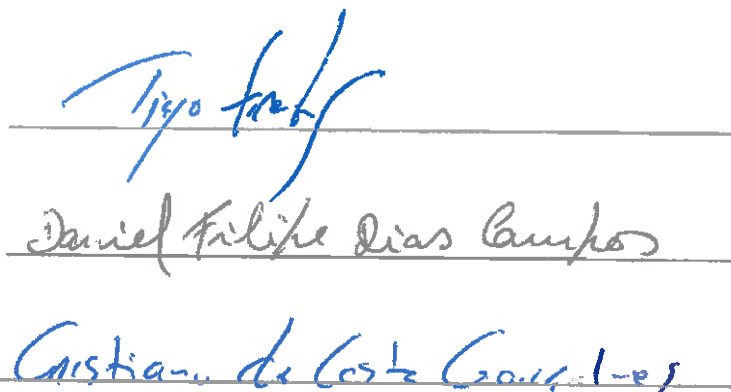 Tiago
Daniel Filipe Dias Campos
Cristiano da Costa Gonçalves